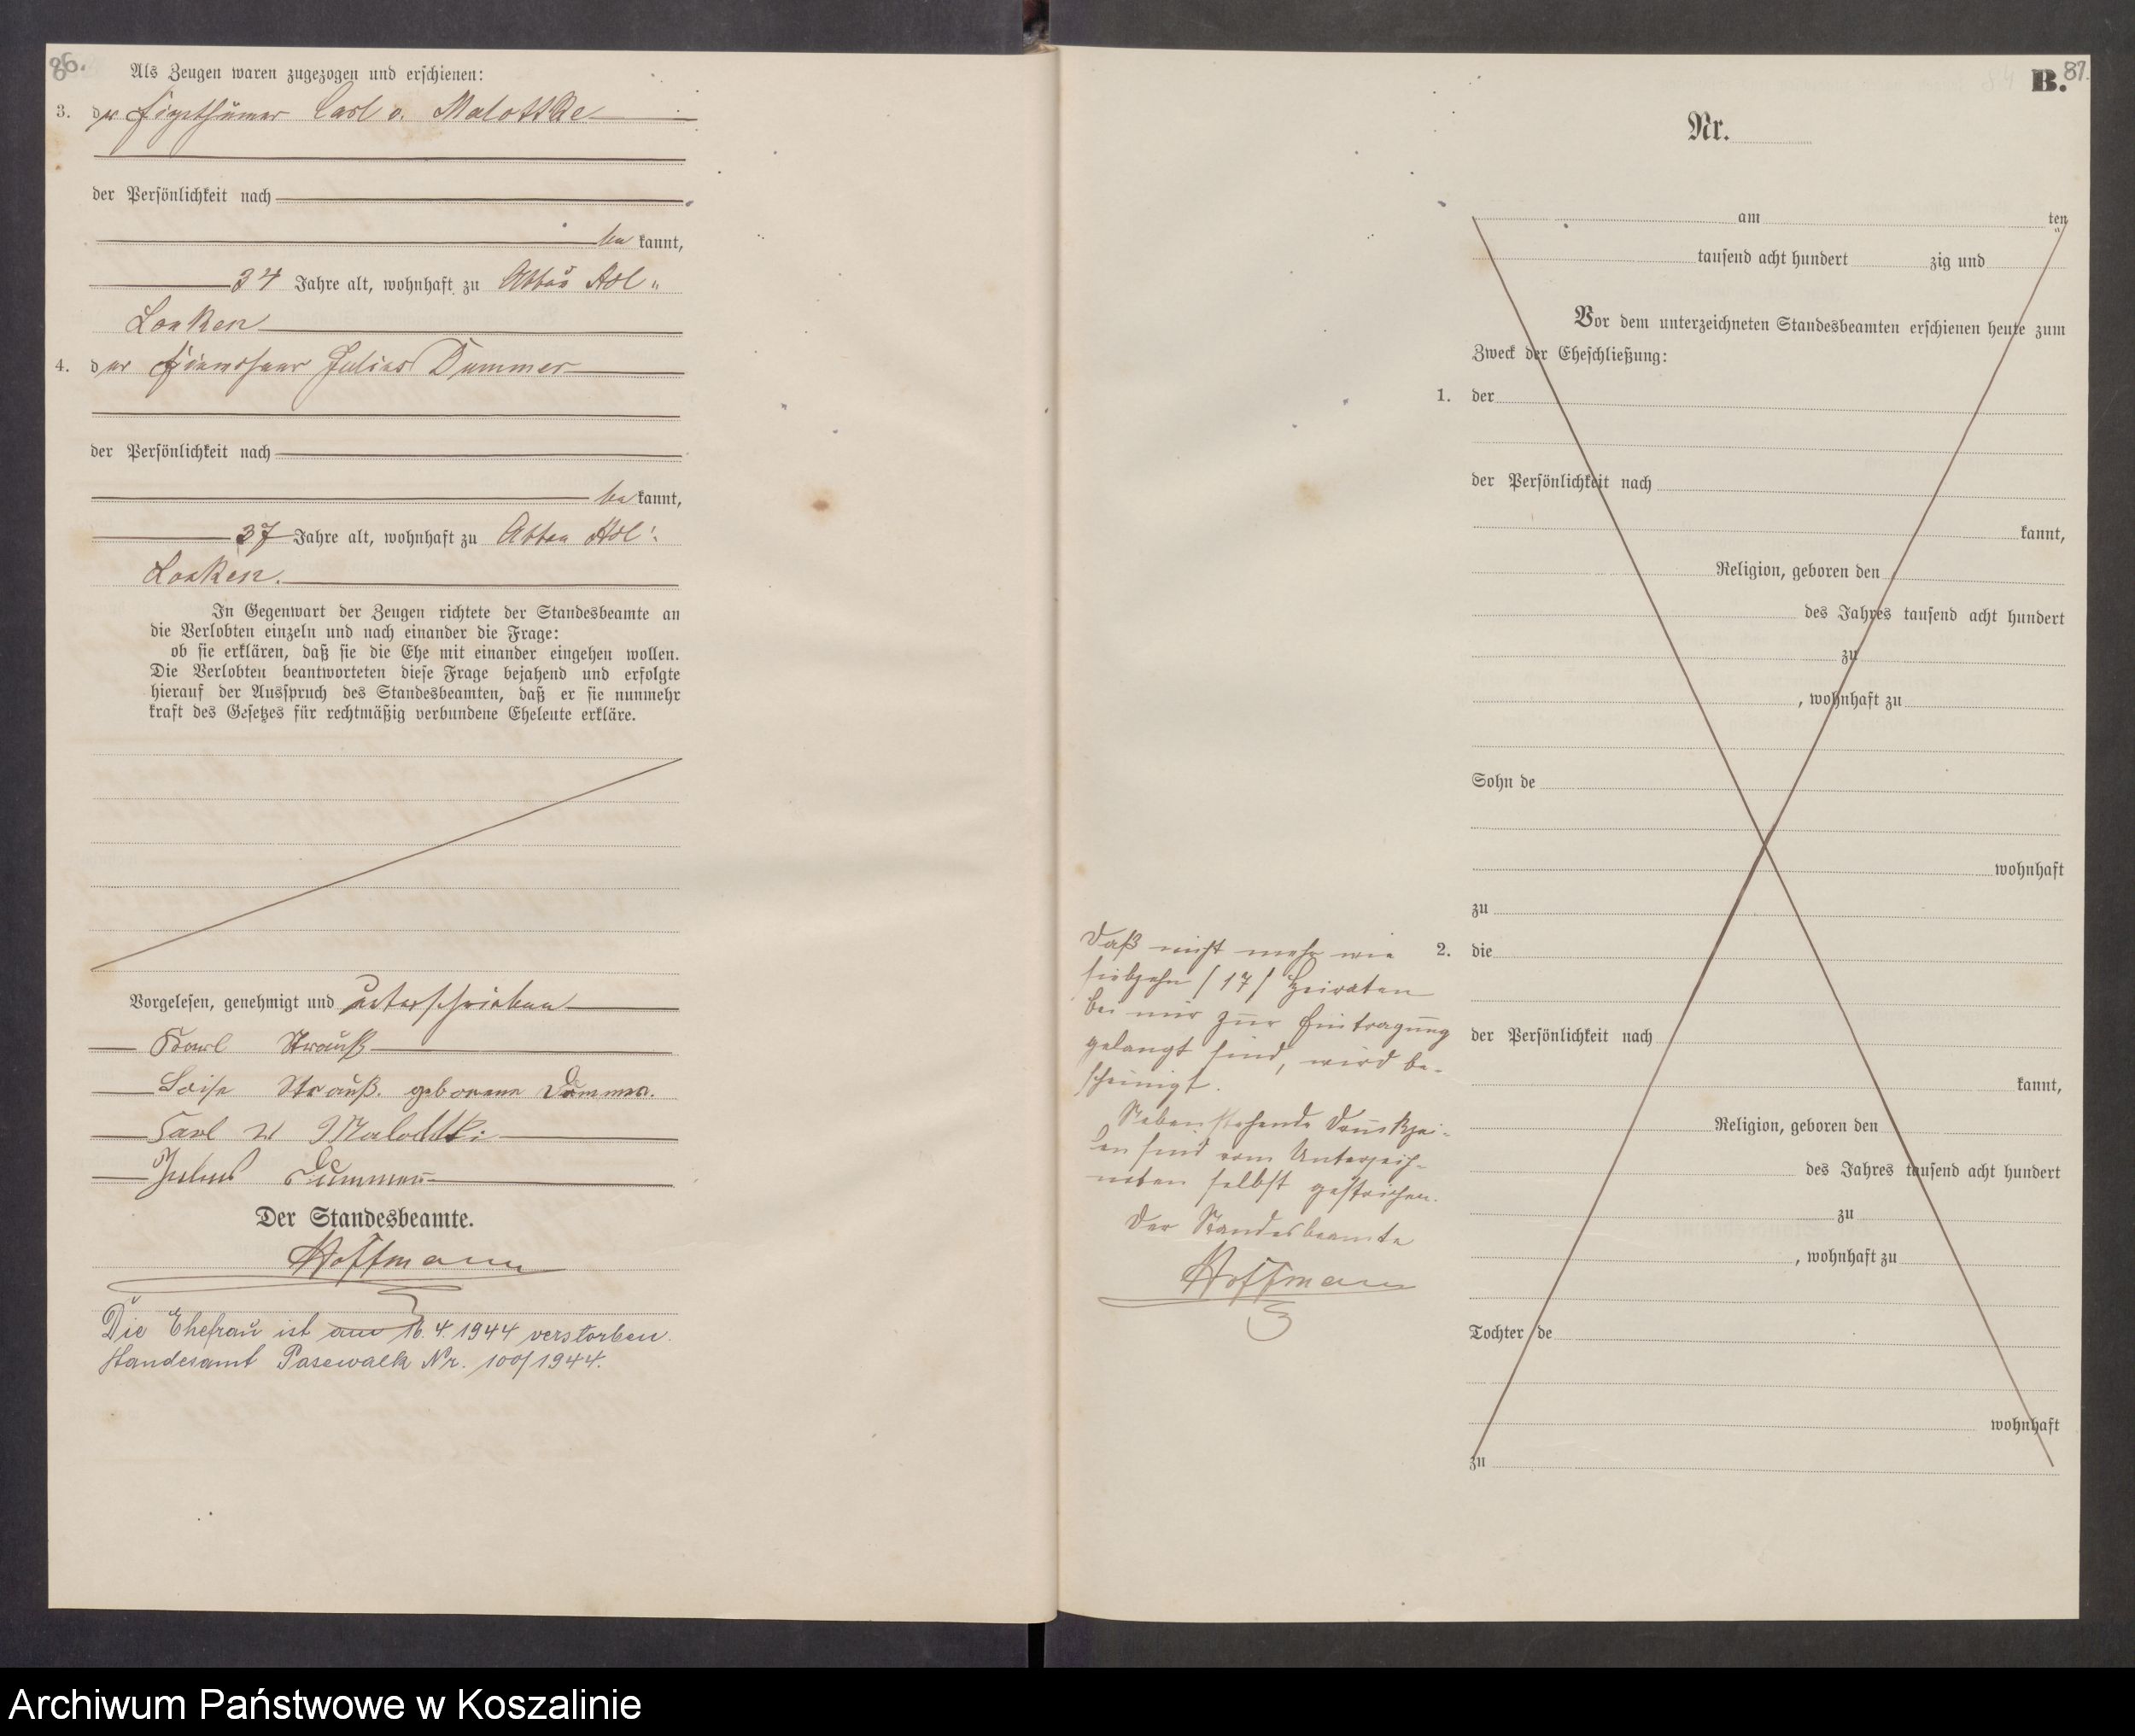 86.
Als Zeugen waren zugezogen und erschienen:
3. der Eigenthümer Carl v. Malottke
der Persönlichkeit nach
be kannt,
34 Jahre alt, wohnhaft zu Abbau Adl.
Looken
4. der Julius Dummer
der Persönlichkeit nach
be kannt,
37 Jahre alt, wohnhaft zu Abbau Adl.
Looken.
In Gegenwart der Zeugen richtete der Standesbeamte an
die Verlobten einzeln und nach einander die Frage:
ob sie erklären, daß sie die Ehe mit einander eingehen wollen.
Die Verlobten beantworteten diese Frage bejahend und erfolgte
hierauf der Ausspruch des Standesbeamten, daß er sie nunmehr
kraft des Gesetzes für rechtmäßig verbundene Eheleute erkläre.
Vorgelesen, genehmigt und unterschrieben
Karl Strauß
Strauß. geborene Dummer.
Carl v
Julius Dummer
Der Standesbeamte.
Hoffmann
Die Ehefrau ist am 16.4.1944 verstorben.
Standesamt Pasewalk Nr. 100/1944.
B. 87.
Nr.
am ten
tausend acht hundert zig und
Vor dem unterzeichneten Standesbeamten erschienen heute zum
Zweck der Eheschließung:
1. der
der Persönlichkeit nach
kannt,
Religion, geboren den
des Jahres tausend acht hundert
zu
, wohnhaft zu
Sohn de
wohnhaft
zu
2. die
der Persönlichkeit nach
kannt,
Religion, geboren den
des Jahres tausend acht hundert
zu
, wohnhaft zu
Tochter de
wohnhaft
zu
Daß nicht mehr wie
siebzehn /17/ Heiraten
bei mir zur Eintragung
gelangt sind, wird be-
scheinigt.
Nebenstehende Druckzei-
len sind vom Unterzeich-
neten selbst gestrichen.
Der Standesbeamte
Hoffmann
Archiwum Państwowe w Koszalinie